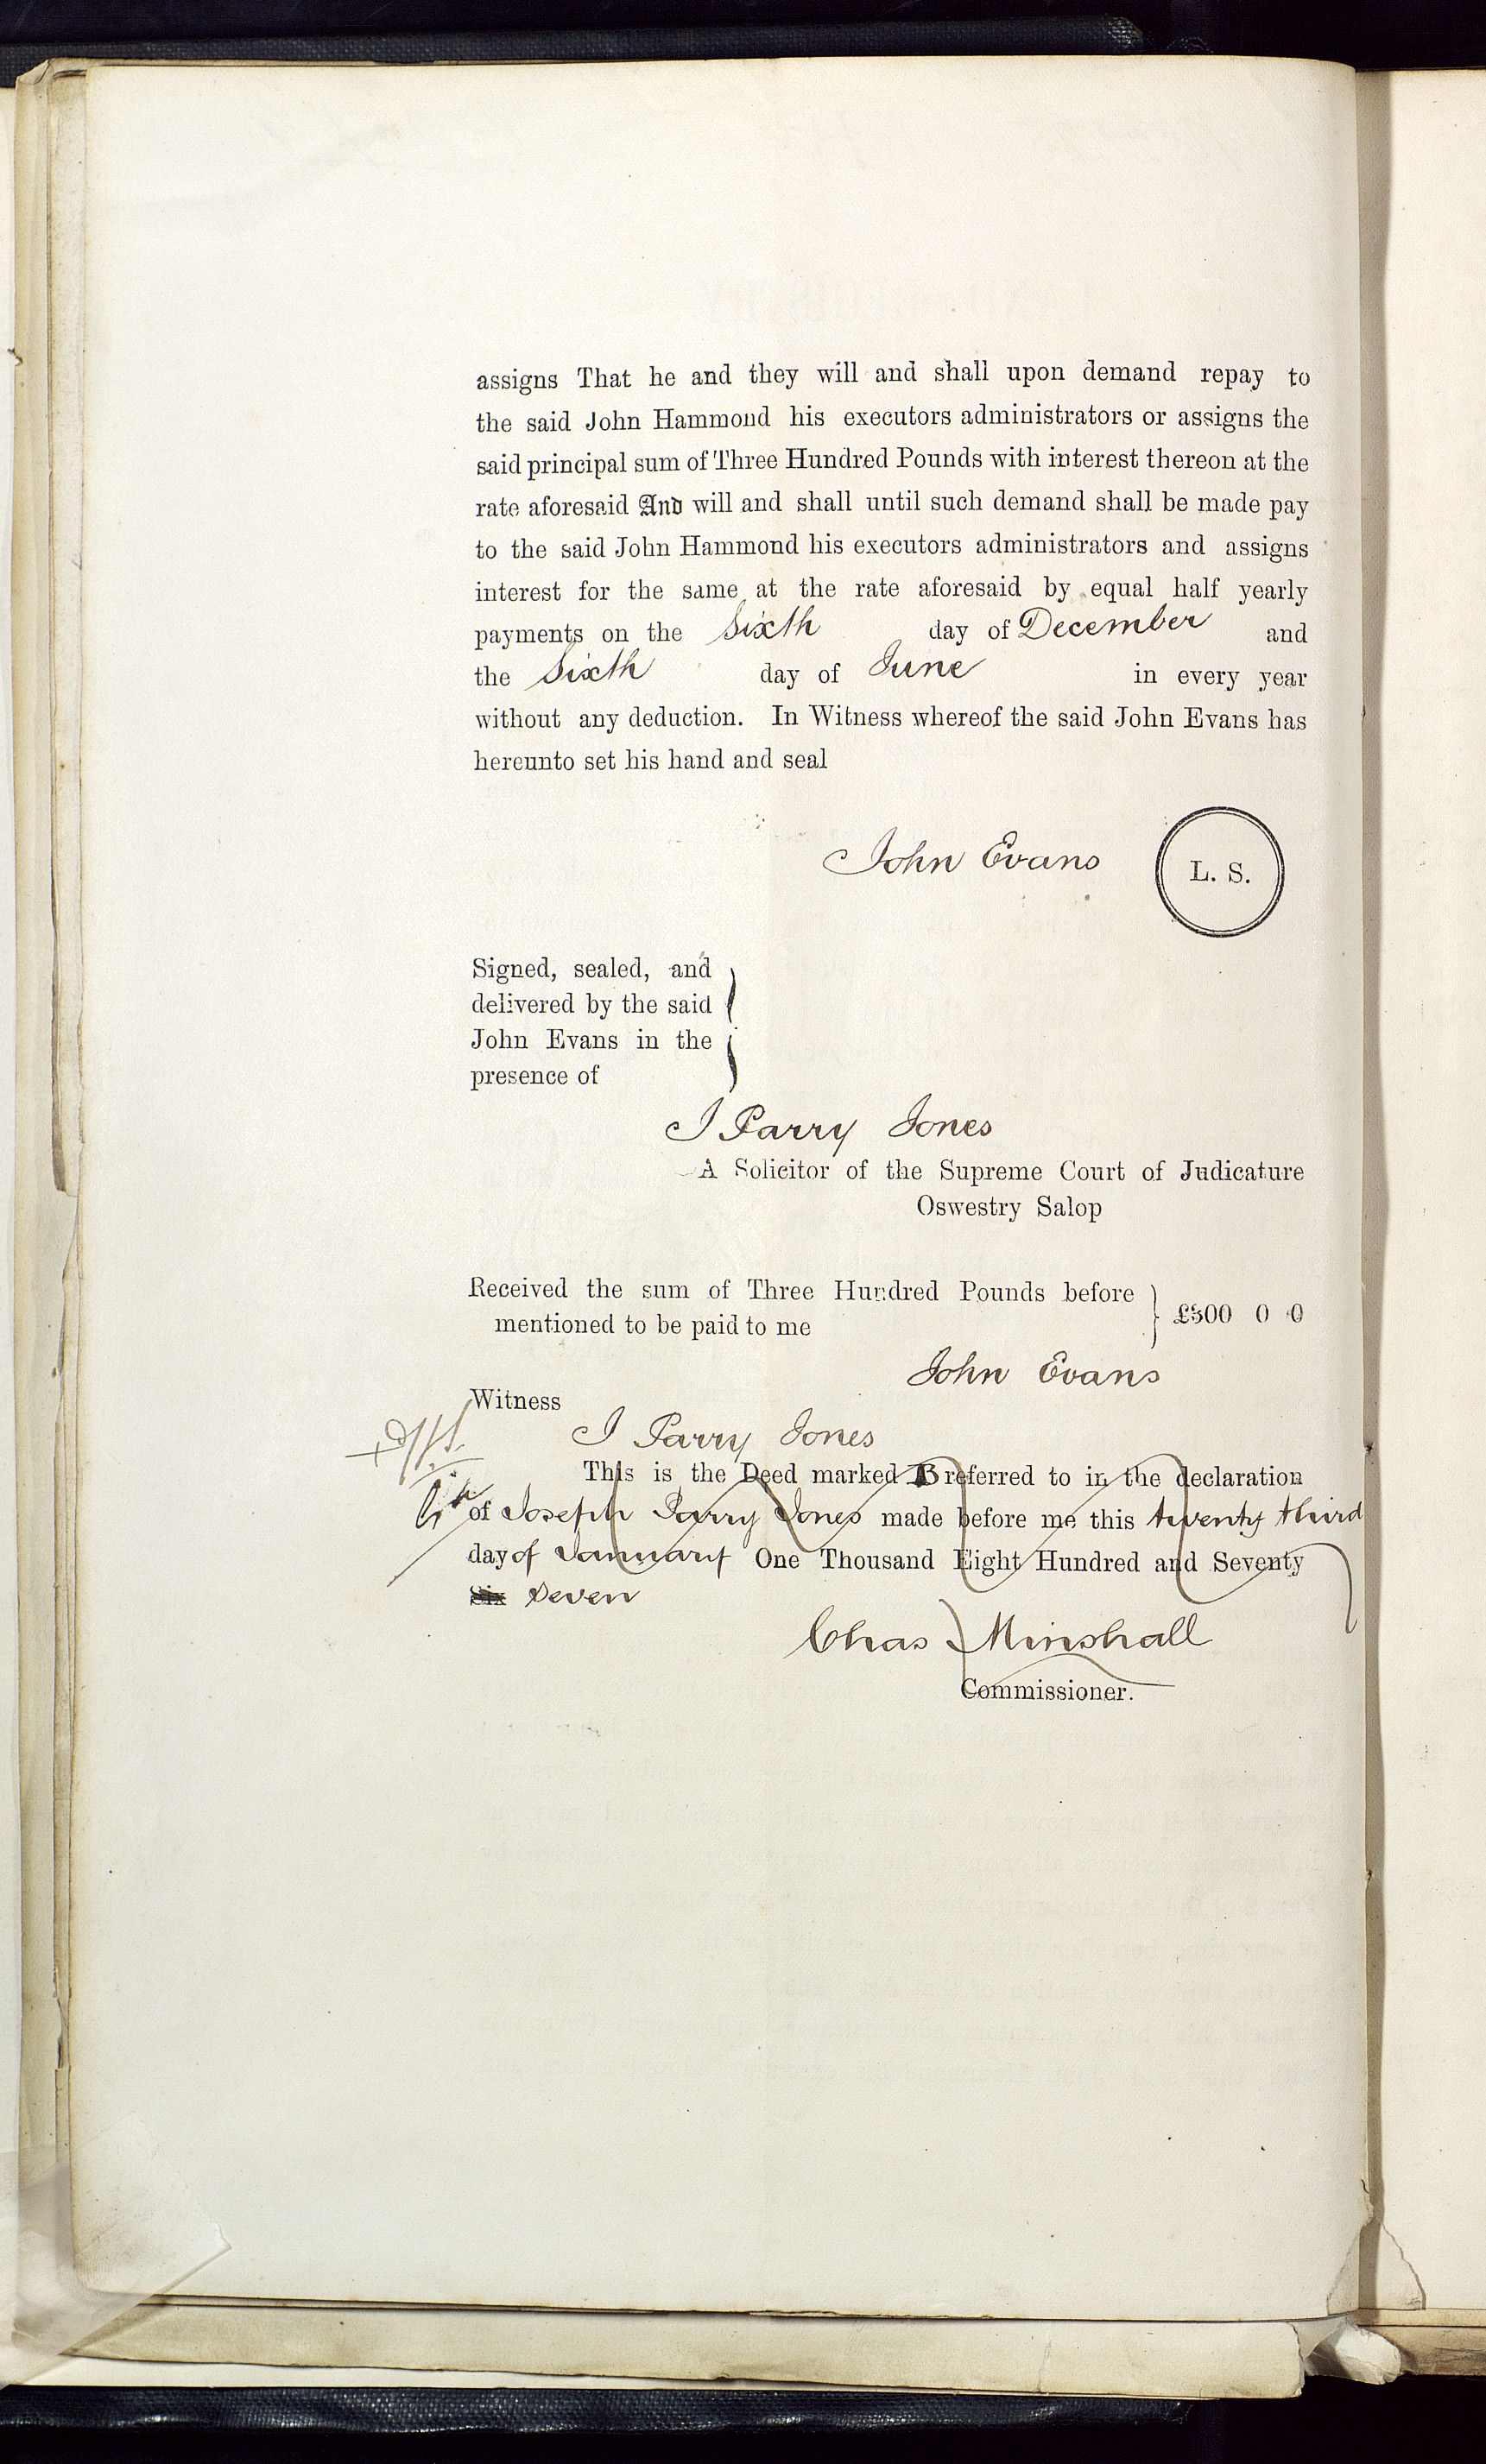 assigns That he and they will and shall upon demand repay to
the said John Hammond his executors administrators or assigns the
said principal sum of Three Hundred Pounds with interest thereon at the
rate aforesaid And will and shall until such demand shall be made pay
to the said John Hammond his executors administrators and assigns
interest for the same at the rate aforesaid by equal half yearly
payments on the Sixth day of December and
the Sixth day of June in every year
without any deduction. In Witness whereof the said John Evans has
hereunto set his hand and seal
John Evans L. S.
Signed, sealed, and
delivered by the said
John Evans in the
presence of
J Parry Jones
A Solicitor of the Supreme Court of Judicature
Oswestry Salop
Received the sum of Three Hundred Pounds before
mentioned to be paid to me £300 0 0
John Evans
Witness
J Parry Jones
This is the Deed marked B referred to in the declaration
of Joseph Parry Jones made before me this twenty third
day of January One Thousand Eight Hundred and Seventy
Six Seven
Chas Minshall
Commissioner.